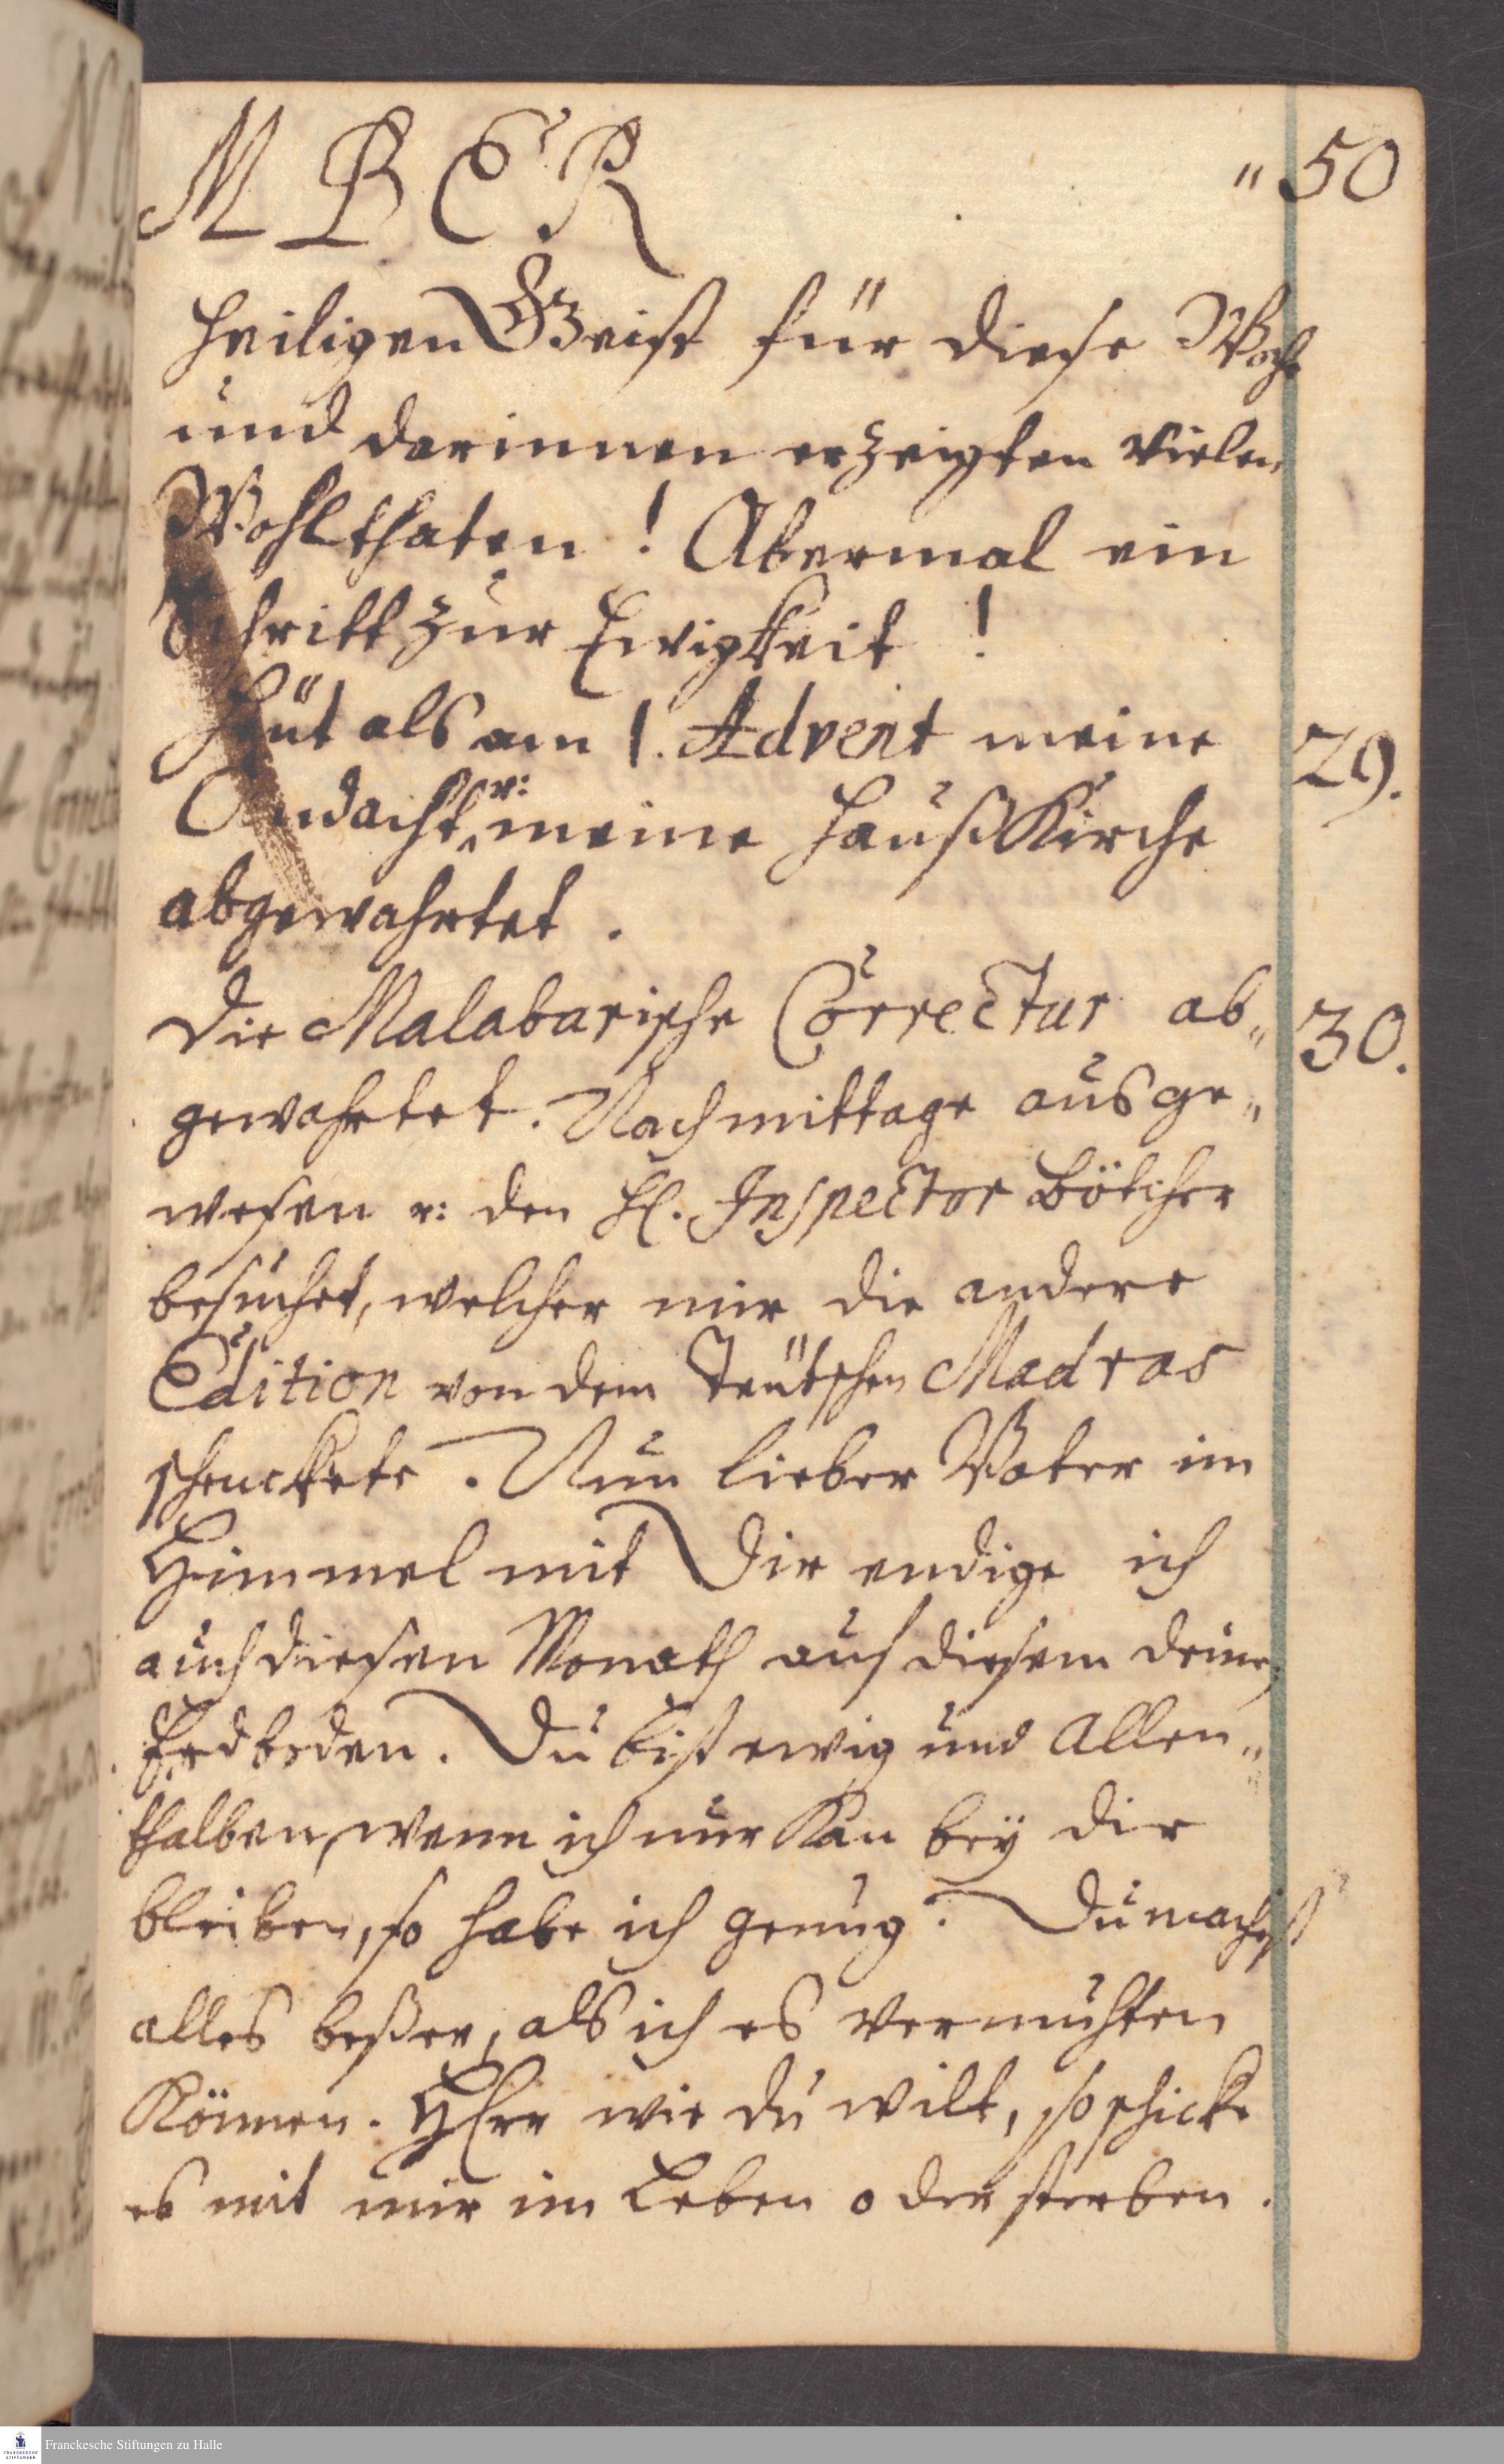 MBER „ 50
heiligen Geist für diese Woche
und darinnen erzeigten vielen
Wohlthaten! Abermal ein
Schritt zur Ewigkeit!
Heüt als am 1. Advent meine 29.
Andacht u: meine HaußKirche
abgewahrtet.
Die Malabarische Correctur ab„ 30.
gewahrtet. Nachmittage ausge„
wesen u: den H. Inspector Bötcher
besuchet, welcher mir die andere
Edition von dem Teütschen Madras
schenckete. Nun lieber Vater im
Himmel mit Dir endige ich
auch diesen Monath auf diesem deinen
Erdboden. Du bist ewig und Allen„
thalben, wenn ich nur Kan beÿ dir
bleiben, so habe ich genug. Du machest
alles beßer, als ich es vermuhten
Können. HErr wie du wilt, so schicke
es mit mir im Leben oder sterben.
Franckesche Stiftungen zu Halle